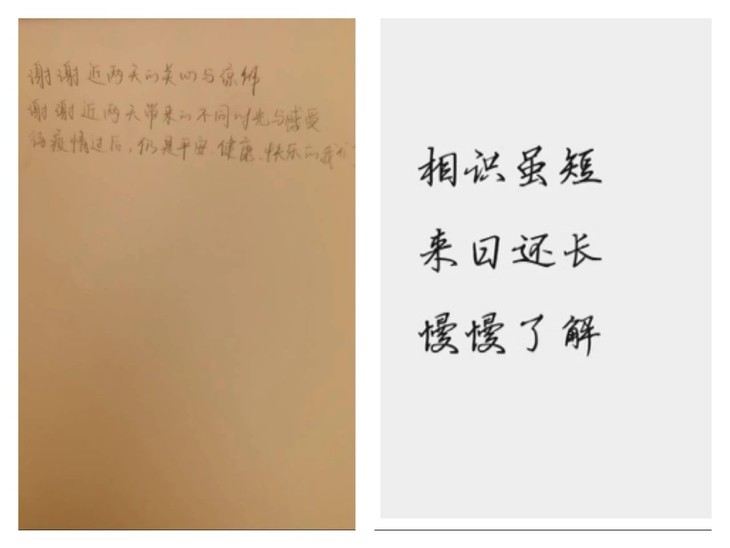 谢谢近两天的关心与
谢谢近两天带来的不同时光与感受
疫情过后,仍是平安、健康、快乐的我们
相识虽短
来日还长
慢慢了解